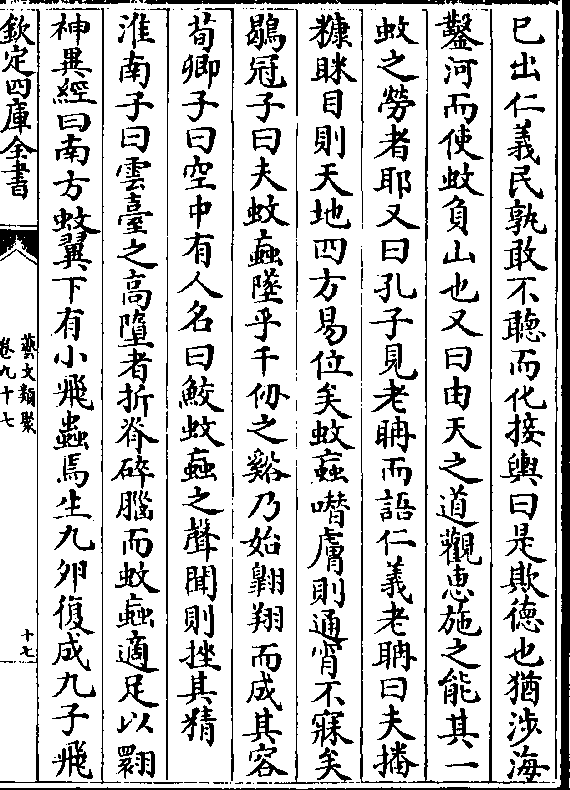 已出仁義民孰敢不聽而化接輿曰是欺德也猶涉海
鑿河而使蚊負山也又曰由天之道觀惠施之能其一
蚊之勞者耶又曰孔子見老聃而語仁義老聃曰夫播
糠眯目則天地四方易位矣蚊䖟噆膚則通宵不寐矣
鶡冠子曰夫蚊䖟墜乎千仞之谿乃始翺翔而成其容
荀卿子曰空中有人名曰鮫蚊䖟之聲聞則挫其猜
淮南子曰雲臺之高墮者折脊碎腦而蚊䖟適足以翾
神異經曰南方蚊翼下有小飛蟲焉生九卵復成九子飛
欽定四庫全書
藝文類聚
卷九十七
十七